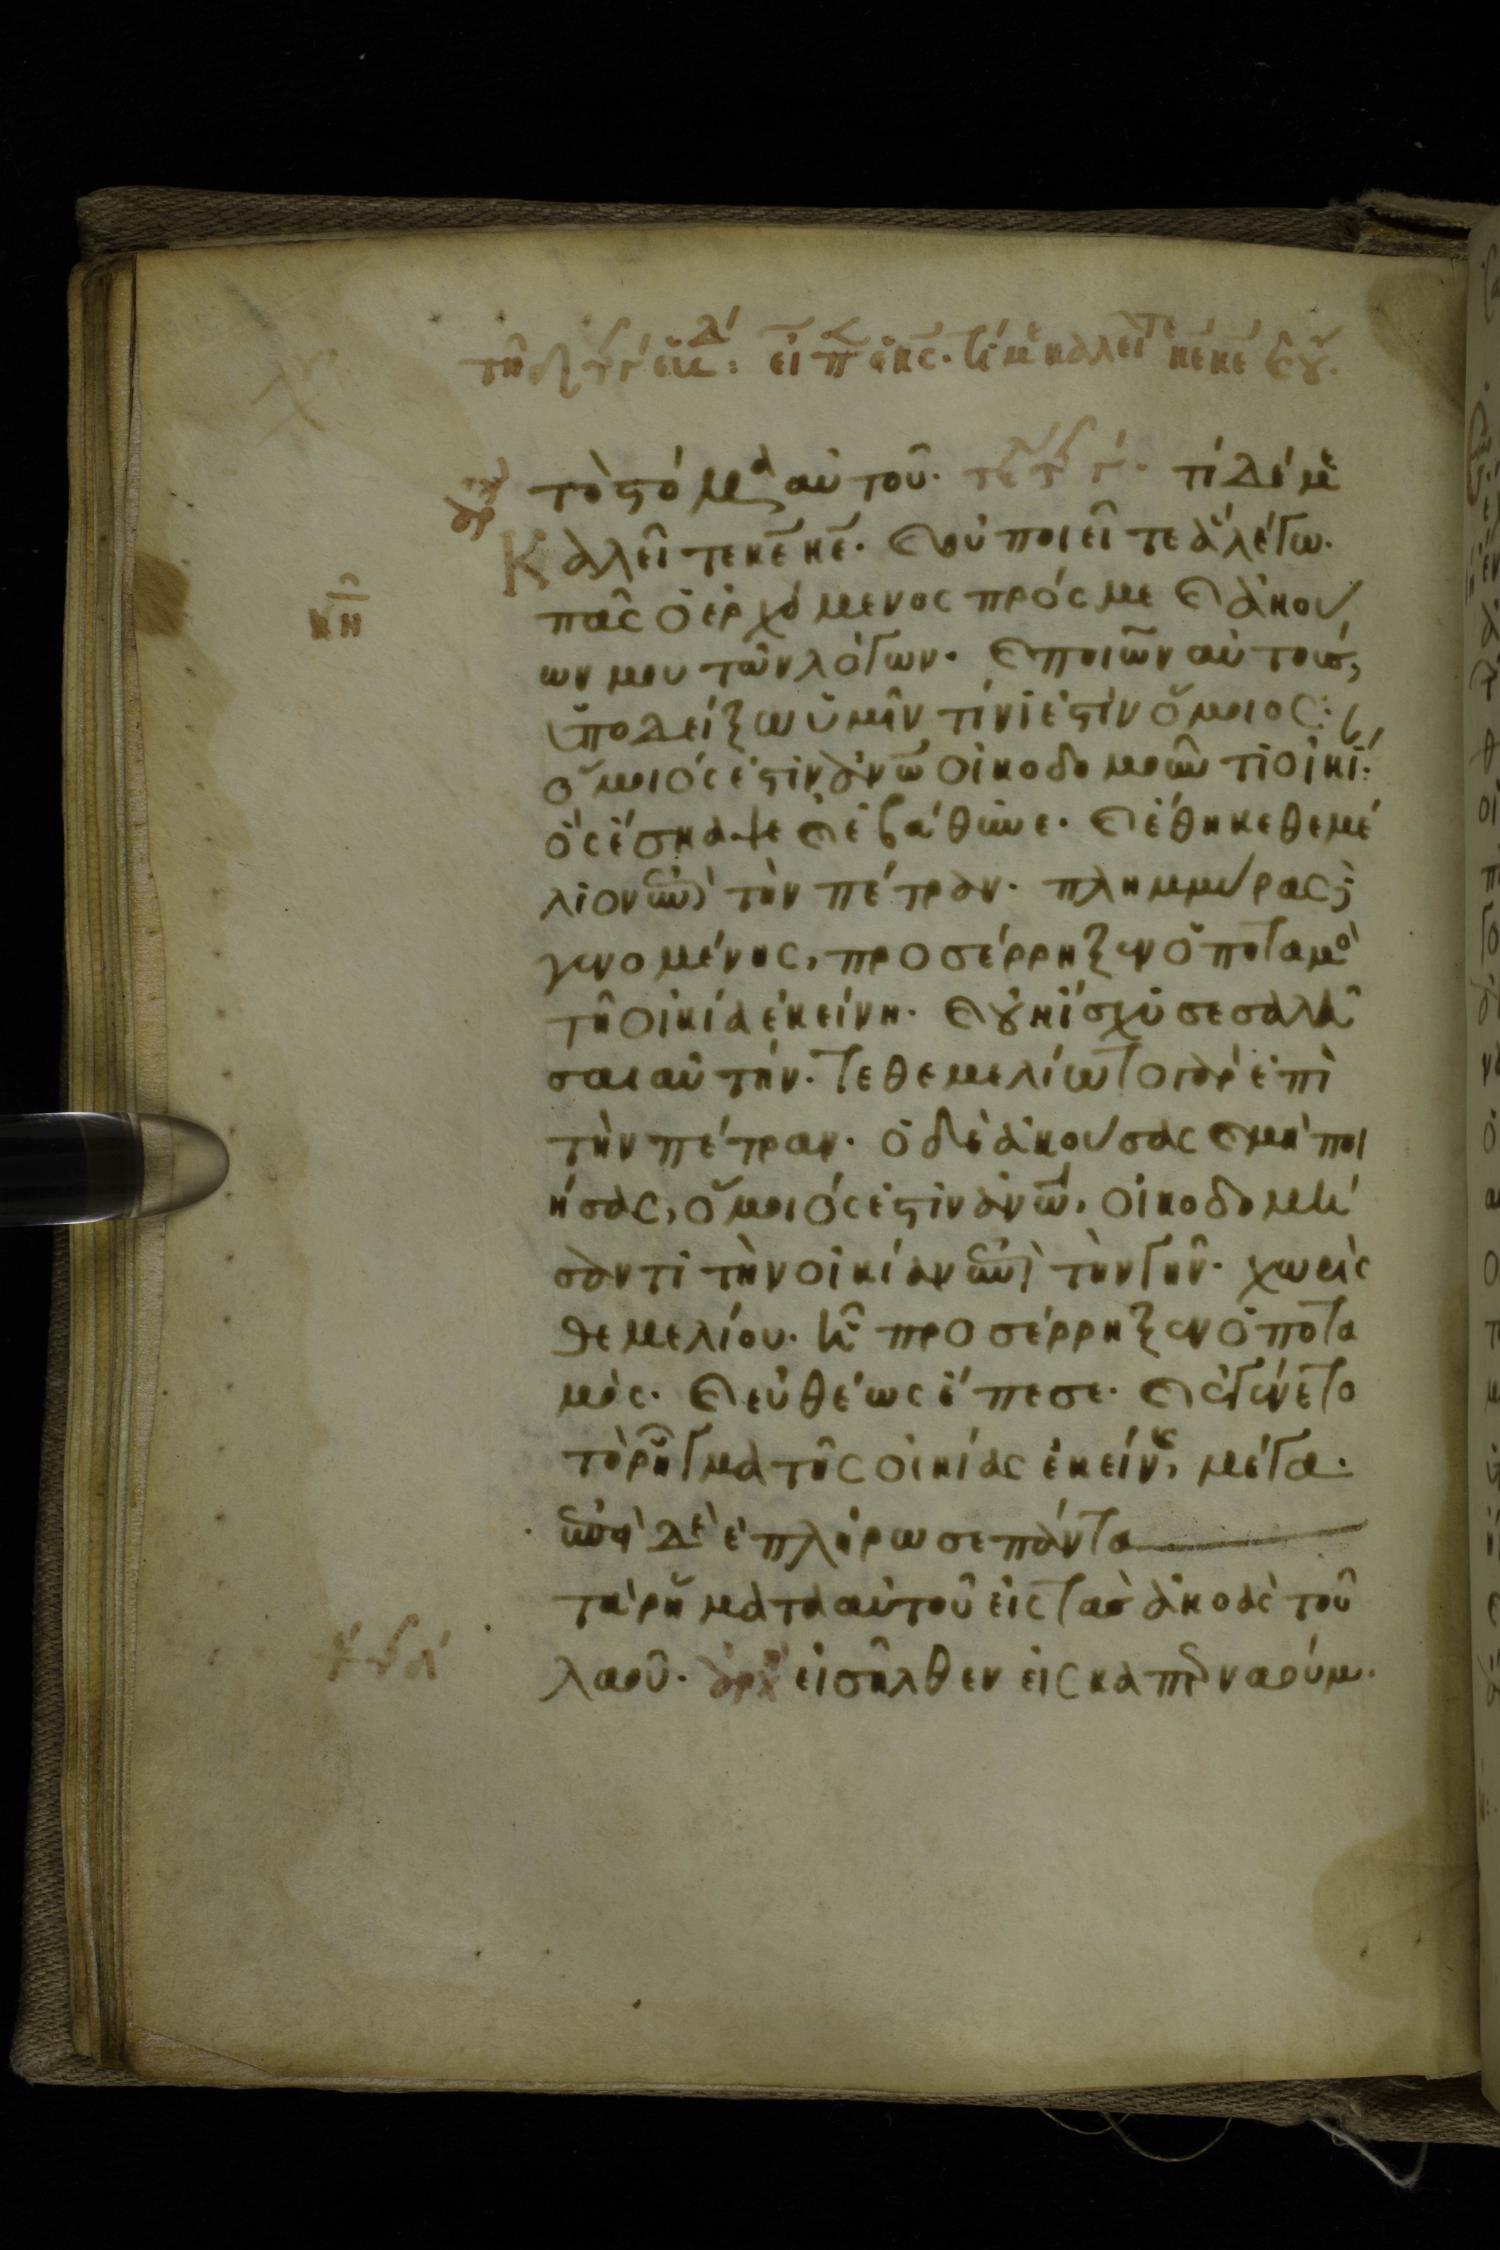 τὸ στόμα αὐτοῦ. τί δέ με
Καλεῖτε κε κε. καὶ οὐ ποιεῖτε ἃ λέγω.
πᾶς ὁ ἐρχόμενος πρός με καὶ ἀκού
ων μου τῶν λόγων. καὶ ποιῶν αὐτούς,
ὑποδείξω ὑμῖν τίνι ἐστὶν ὅμοιος:
ὅμοιός ἐστιν ἀνω οἰκοδομοῦντι οἰκί.
ὃς ἔσκαψε καὶ ἐβάθυνε. καὶ ἔθηκε θεμέ
λιον ἐπὶ τὴν πέτραν. πλημμύρας δὲ
γενομένης, προσέρρηξεν ὁ ποταμὸ
τῆ οἰκία ἐκείνη. καὶ οὐκ ἴσχυσε σαλεῦ
σαι αὐτήν. τεθεμελίωτο γὰρ ἐπὶ
τὴν πέτραν. ὁ δὲ ἀκούσας καὶ μὴ ποι
ήσας, ὅμοιός ἐστιν ἀνω, οἰκοδομή
σαντι τὴν οἰκίαν ἐπὶ τὴν γῆν. χωρὶς
θεμελίου. ἧ προσέρρηξεν ὁ ποτα
μός. καὶ εὐθέως ἔπεσε. καὶ ἐγένετο
τὸ ῥῆγμα τῆς οἰκίας ἐκείνης μέγα.
ἐπεὶ δὲ ἐπλήρωσε πάντα
τὰ ῥήματα αὐτοῦ εἰς τὰς ἀκοὰς τοῦ
λαοῦ. ἀρχ εἰσῆλθεν εἰς καπερναούμ.